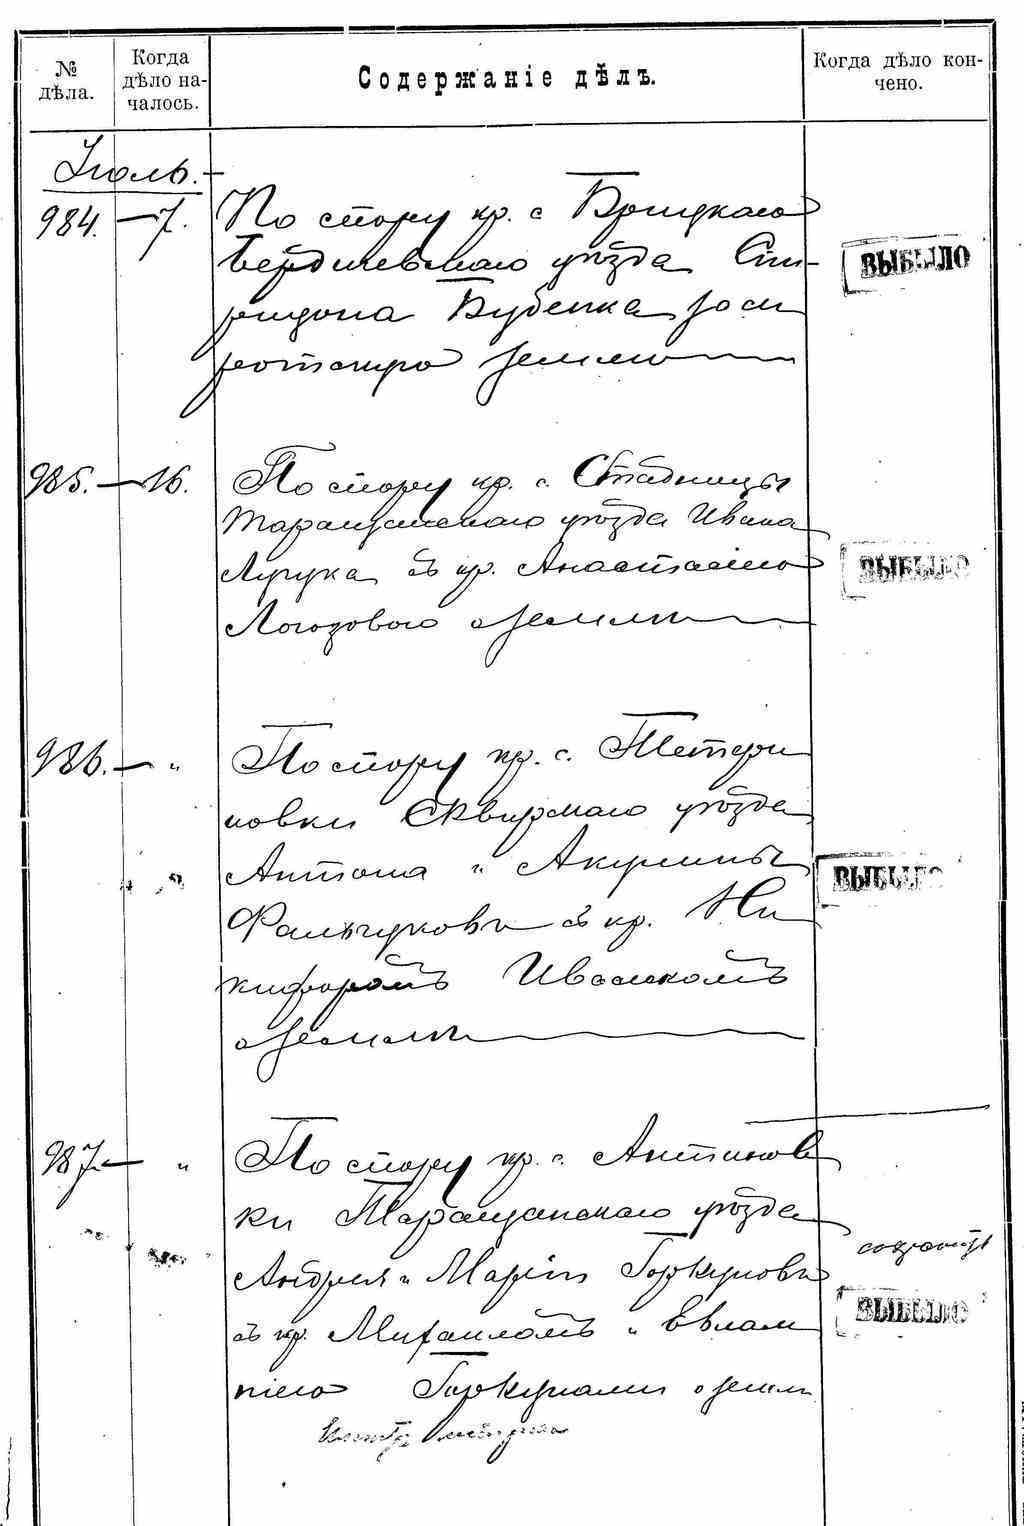 № дѣла.
Когда дѣло на-
чалось.
Содержаніе дѣлъ.
Когда дѣло кон-
чено.
Іюль.
984. — 7. По спору кр. с Брицкаго
Бердичевскаго уѣзда Спи-
ридона Бубенка за си
ротскую землю
ВЫБЫЛО
985. — 16. По спору кр. с. Стадницы
Таращанскаго уѣзда Ивана
съ кр. Анастасіею
Логозового о земли
ВЫБЫЛО
986. — „ По спору кр. с. Тетери
новки Сквирскаго уѣзда
Антона и Акулины
Фальчуковы съ кр. Ни
кифоромъ Ивасюкомъ
о земли
ВЫБЫЛО
987. — „ По спору кр. с. Антинов
ки Таращанскаго уѣзда
Андрея и Маріи Горкуновы
съ кр. Михаиломъ и Евлам
піею Горкунами о земли
ВЫБЫЛО